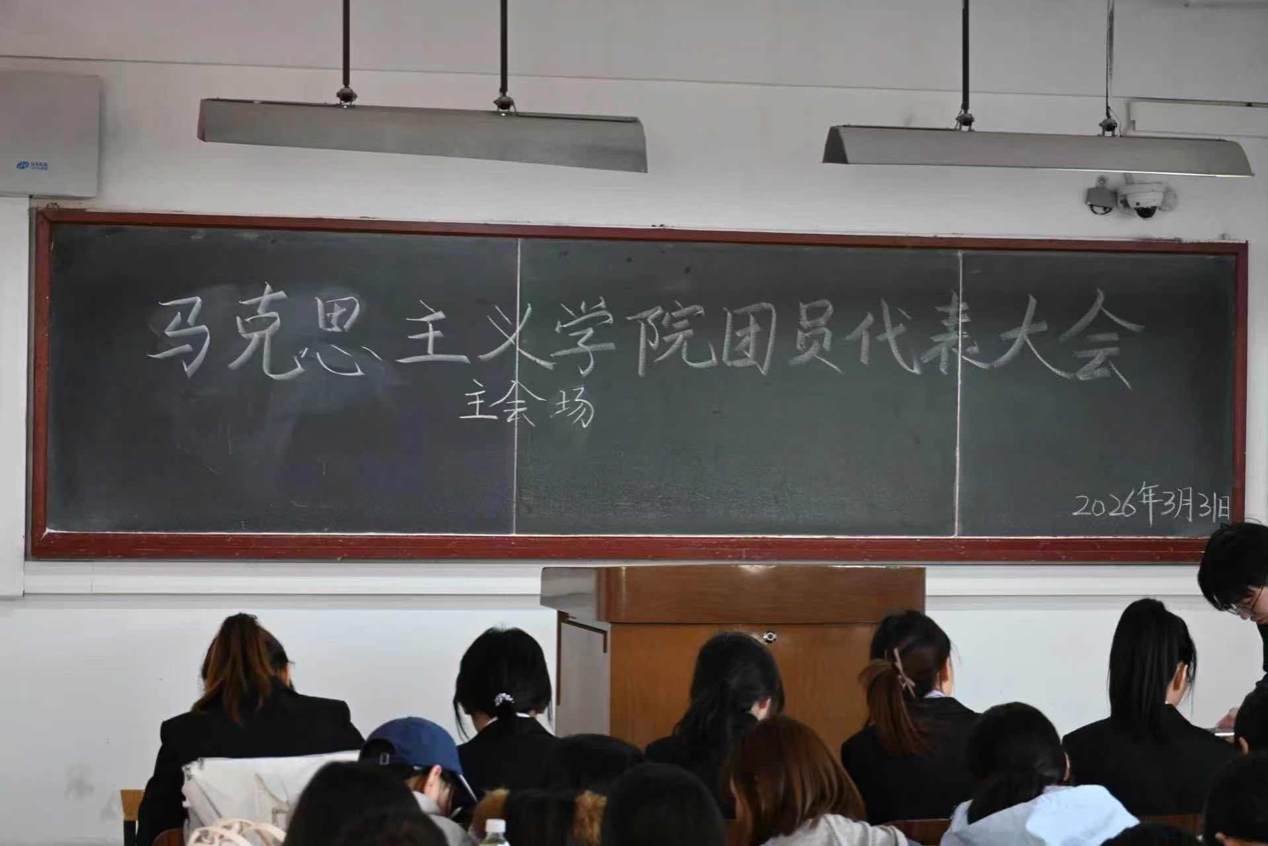 马克思主义学院团员代表大会
主会场
2026年3月31日